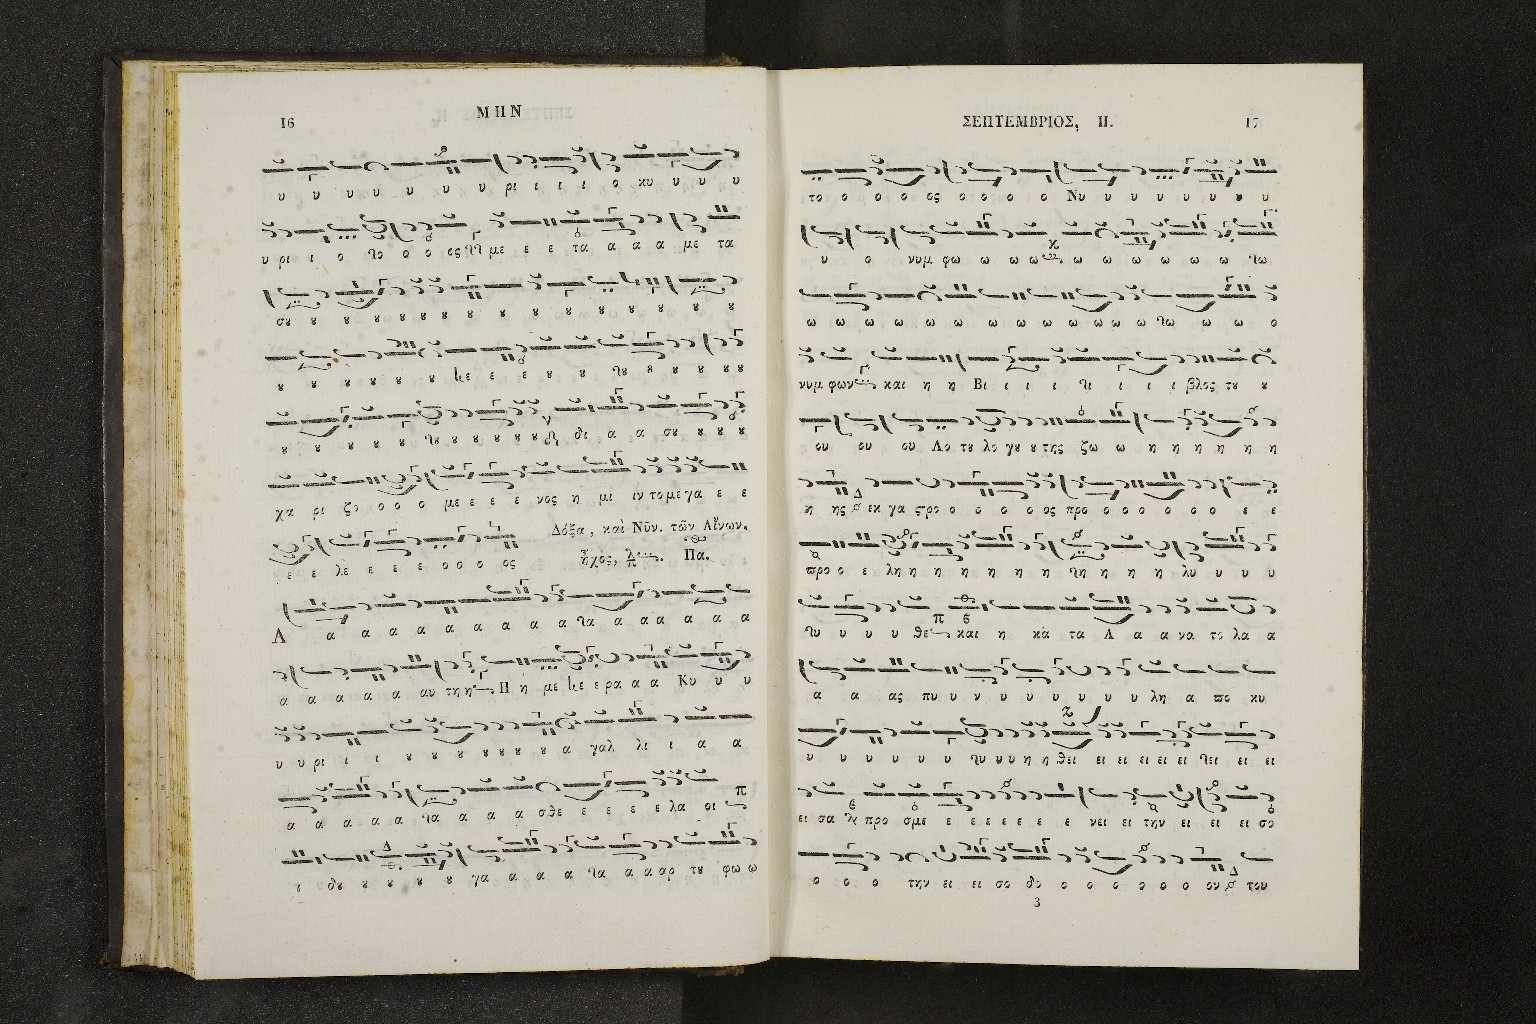 16
ΜΗΝ
υ υ υ υ υ υ υ ρι ι ι ι ο κυ υ υ υ
υ ρι ι ο το ο ο ος με ε ε τα α α α με τα
σȣ ȣ ȣ ȣ ȣ ȣ ȣ ȣ ȣ ȣ ȣ ȣ ȣ ȣ ȣ ȣ ȣ
ȣ ȣ ȣ ȣ ȣ ȣ ε ε ε ȣ ȣ ȣ ȣ ȣ ȣ ȣ
ȣ ȣ ȣ ȣ ȣ ȣ ȣ ȣ ȣ ȣ ȣ δι α α σȣ ȣ ȣ ȣ
χα ρι ζο ο ο ο με ε ε ε νος η μι ιν το με γα ε ε
Δόξα, καὶ Νῦν. τῶν Αἴνων.
ἦχος, Πα.
ε ε λε ε ε ε ο ο ο ος
Α α α α α α α α α α τα α α α α α α
α α α α α αυ τη η Η η με ε ε ρα α α Κυ υ υ
υ υ ρι ι ι ȣ ȣ ȣ ȣ ȣ ȣ ȣ α γαλ λι ι α α
α α α α α τα α α α σθε ε ε ε ε λα οι
ι δȣ ȣ ȣ ȣ ȣ γα α α α τα α α αρ τȣ φω ω
ΣΕΠΤΕΜΒΡΙΟΣ, Η.
17
το ο ο ο ος ο ο ο ο Νυ υ υ υ υ υ υ υ υ
υ ο νυμ φω ω ω ω ω ω ω ω ω ω τω
ω ω ω ω ω ω ω ω ω ω ω ω ω τω ω ω ο
νυμ φων και η η Βι ι ι ι τι ι ι ι βλος τȣ ȣ
ου ου ου Λο τȣ λο γȣ ȣ της ζω ω η η η η η η
η ης εκ γα στρο ο ο ο ο ος προ ο ο ο ο ο ο ε ε
προ ο ε λη η η η η η η τη η η η λυ υ υ υ
τυ υ υ υ θε και η κα τα Α α α να το λα α
α α ας πυ υ υ υ υ υ υ υ υ λη α πο κυ
υ υ υ υ υ υ τυ υ υ η η θει ει ει ει ει ει τει ει ει
ει σα προ σμε ε ε ε ε ε ε ε νει ει την ει ει ει σο
ο ο ο την ει ει σο δο ο ο ο ο ο ο ο ον του
3